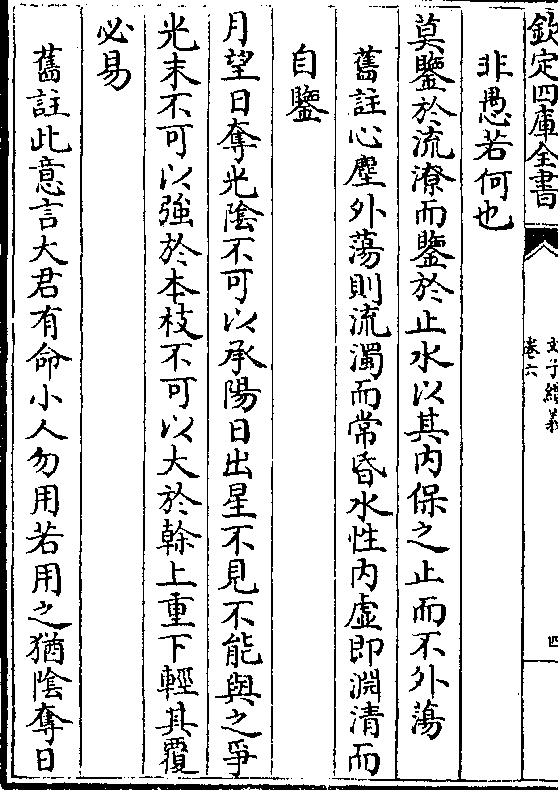 欽定四庫全書
文子纘義
卷六
四
非愚若何也
莫鑒於流潦而鑒於止水以其内保之止而不外蕩
舊註心塵外蕩則流濁而常昏水性内虚即淵清而
自鑒
月望日奪光陰不可以承陽日出星不見不能與之爭
光末不可以強於本枝不可以大於榦上重下輕其覆
必易
舊註此意言大君有命小人勿用若用之猶陰奪日